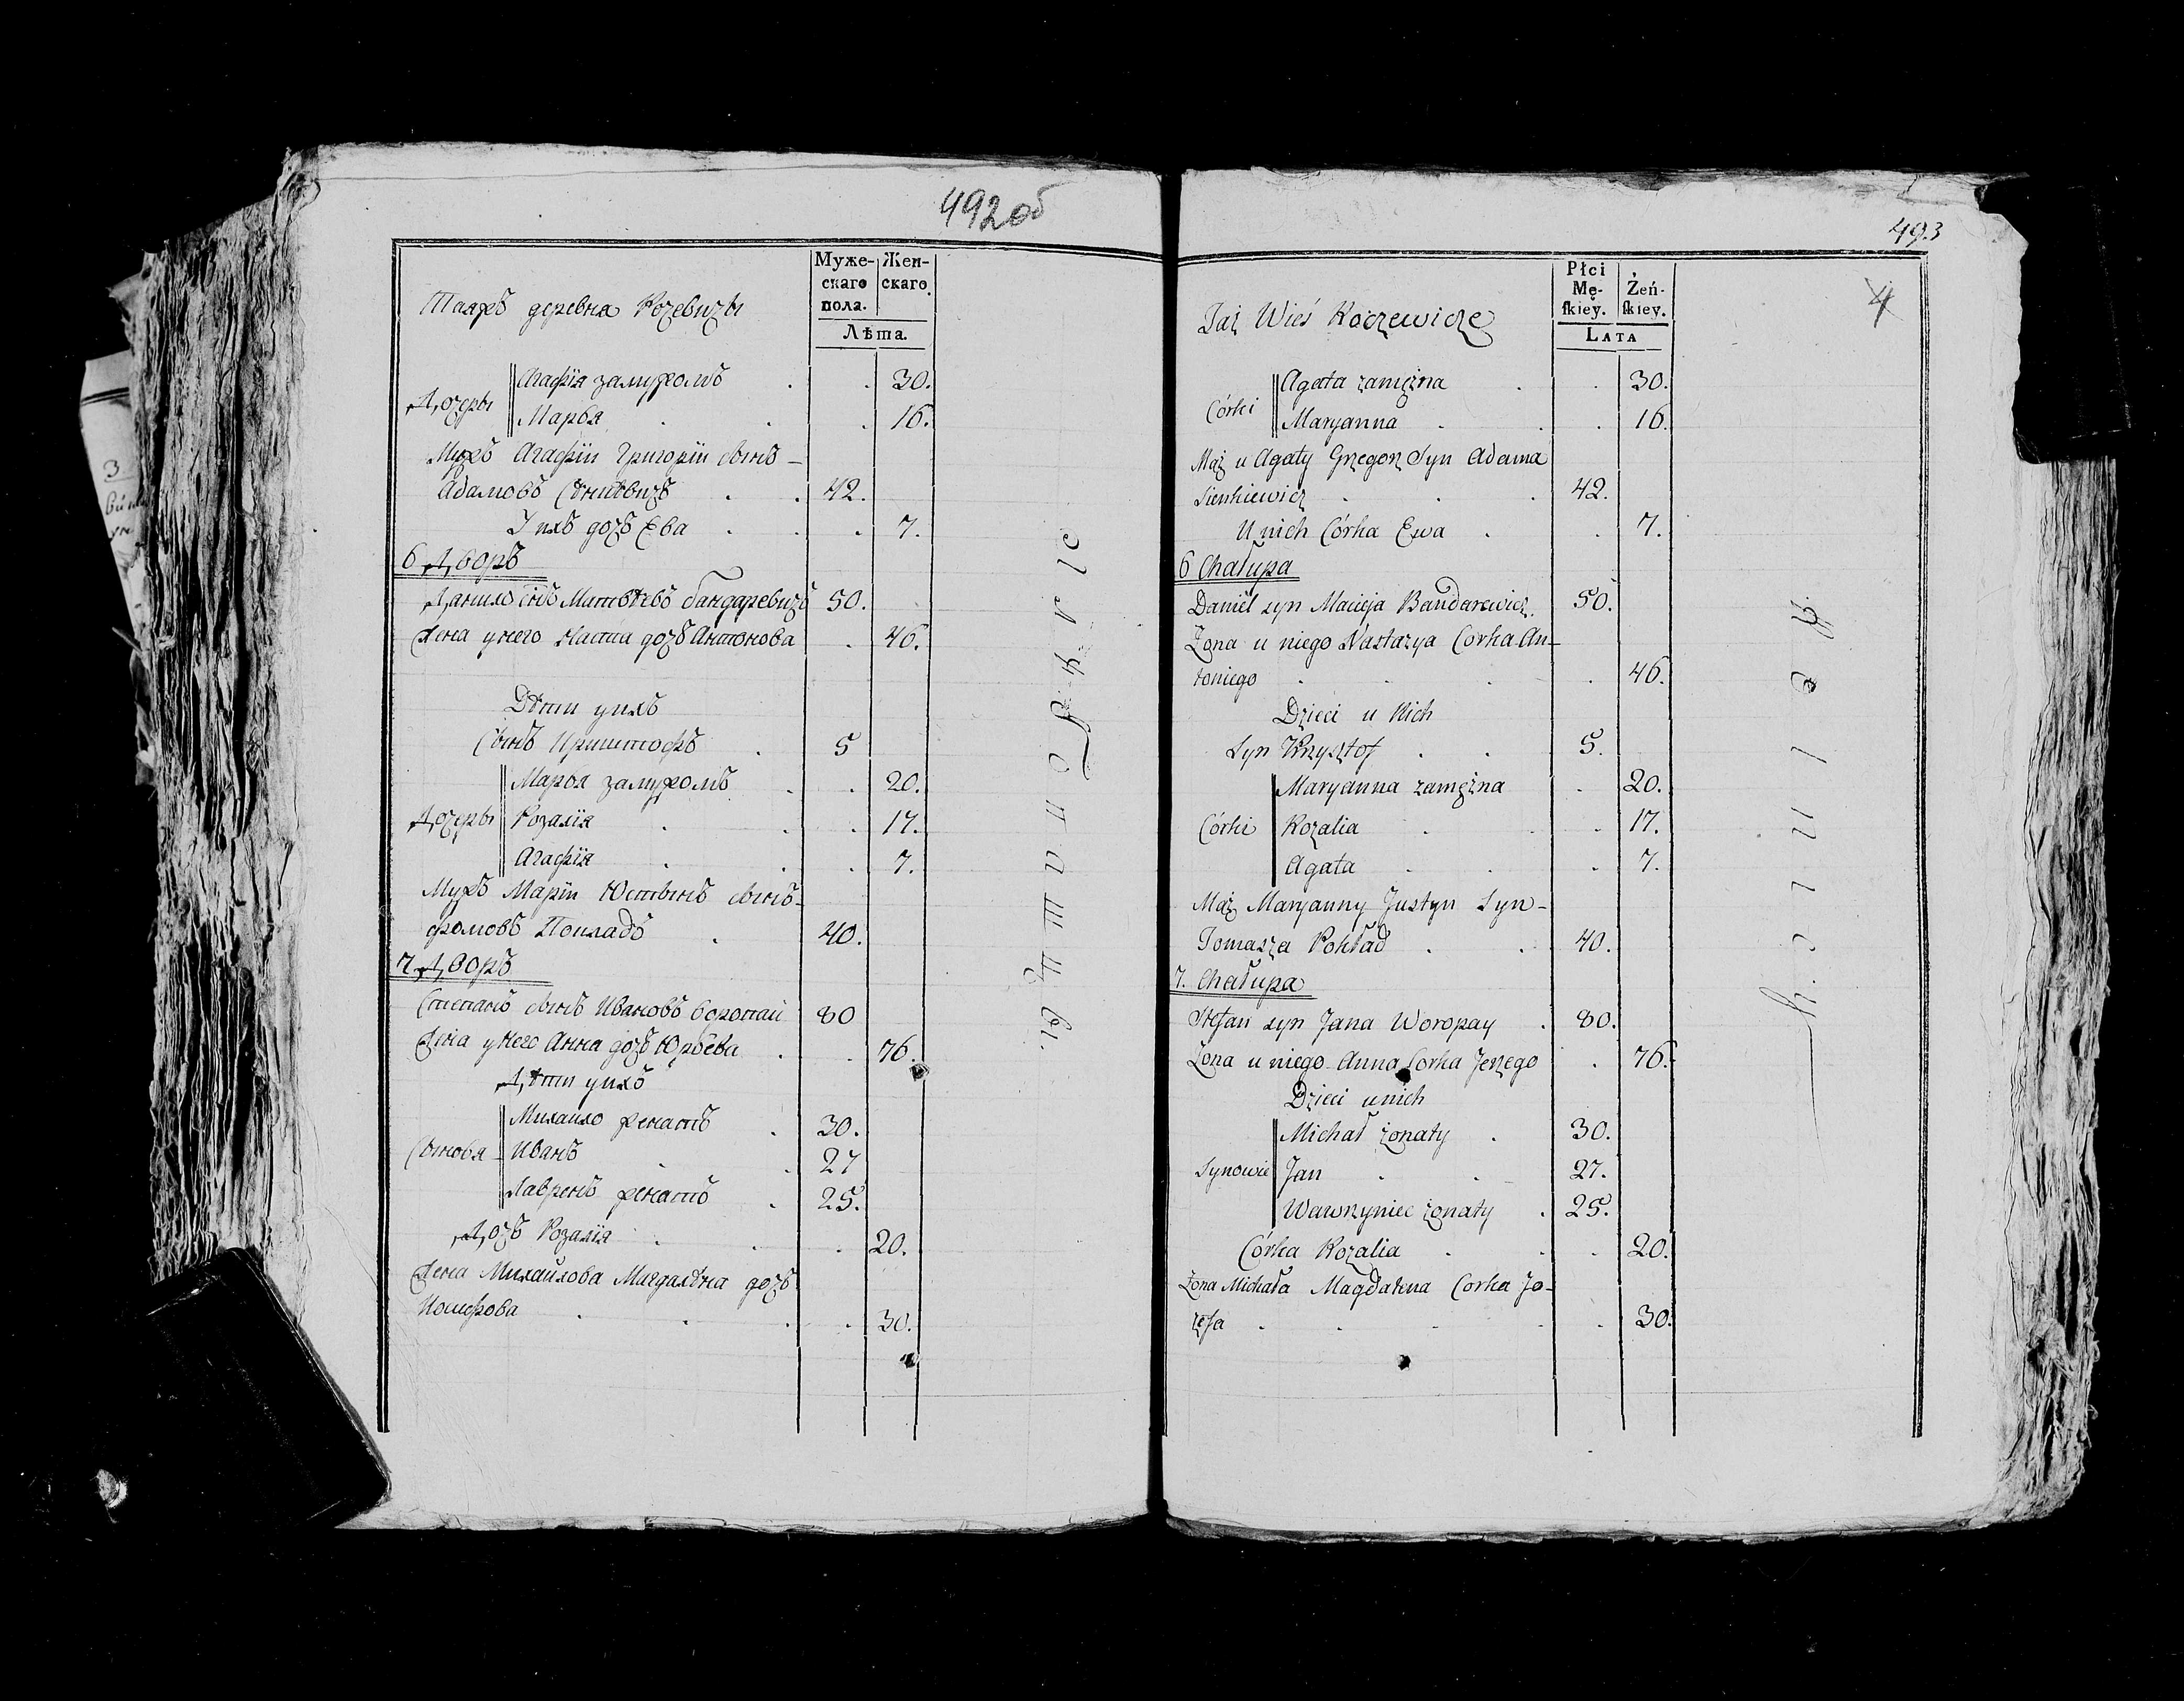 492об
Таяжъ деревня Кочевичы
Муже-
скаго
пола.
Жен-
скаго.
Лѣта.
Дочеры
Агафія замужомъ . . 30.
Марья . . . 16.
Мужъ Агафіи Григоріи сынъ-
Адамовъ Сѣнкѣвичъ . . 42.
У ихъ дочъ Ева . . . 7.
6 Дворъ
Данило сынъ Матвѣевъ Бандаревичъ 50.
Жена у него Настя дочъ Антонова . 46.
Дѣти у ихъ
Сынъ Криштофъ . 5
Дочеры
Марья замужомъ . . 20.
Розалія . . . 17.
Агафія . . . 7.
Мужъ Маріи Юстынъ сынъ-
Фомовъ Покладъ . 40.
7 Дворъ
Степанъ сынъ Ивановъ Воропай 80
Жена у него Анна дочъ Юрьева . . 76.
Дѣти у ихъ
Сыновья
Михайло женатъ . 30.
Иванъ . . 27
Лавренъ женатъ . 25.
Дочъ Розалія . . . 20.
Жена Михайлова Магдалѣна дочъ
Іосифова . . . . 30.
493
4
Taż Wieś Koczewicze
Płci
Mę-
skiey.
Żeń-
skiey.
LATA
Córki
Agata zamężna . . 30.
Maryanna . . . 16.
Mąż u Agaty Grzegorz Syn Adama
Sienkiewicz . . . 42.
U nich Córka Ewa . . 7.
6 Chałupa
Daniel syn Macieja Bandarewicz. 50.
Żona u niego Nastazya Corka An-
toniego . . . . 46.
Dzieci u Nich
Syn Krzysztof . . 5.
Córki
Maryanna zamężna . 20.
Rozalia . . . 17.
Agata . . . 7.
Mąż Maryanny Justyn Syn-
Tomasza Pokład . . 40.
7. Chałupa
Stefan syn Jana Woropay . 80.
Żona u niego Anna Corka Jerzego . 76.
Dzieci u nich
Synowie
Michał żonaty . 30.
Jan . . 27.
Wawrzyniec żonaty . 25.
Córka Rozalia . . . 20.
Żona Michała Magdalena Corka Jo-
zefa . . . . . 30.